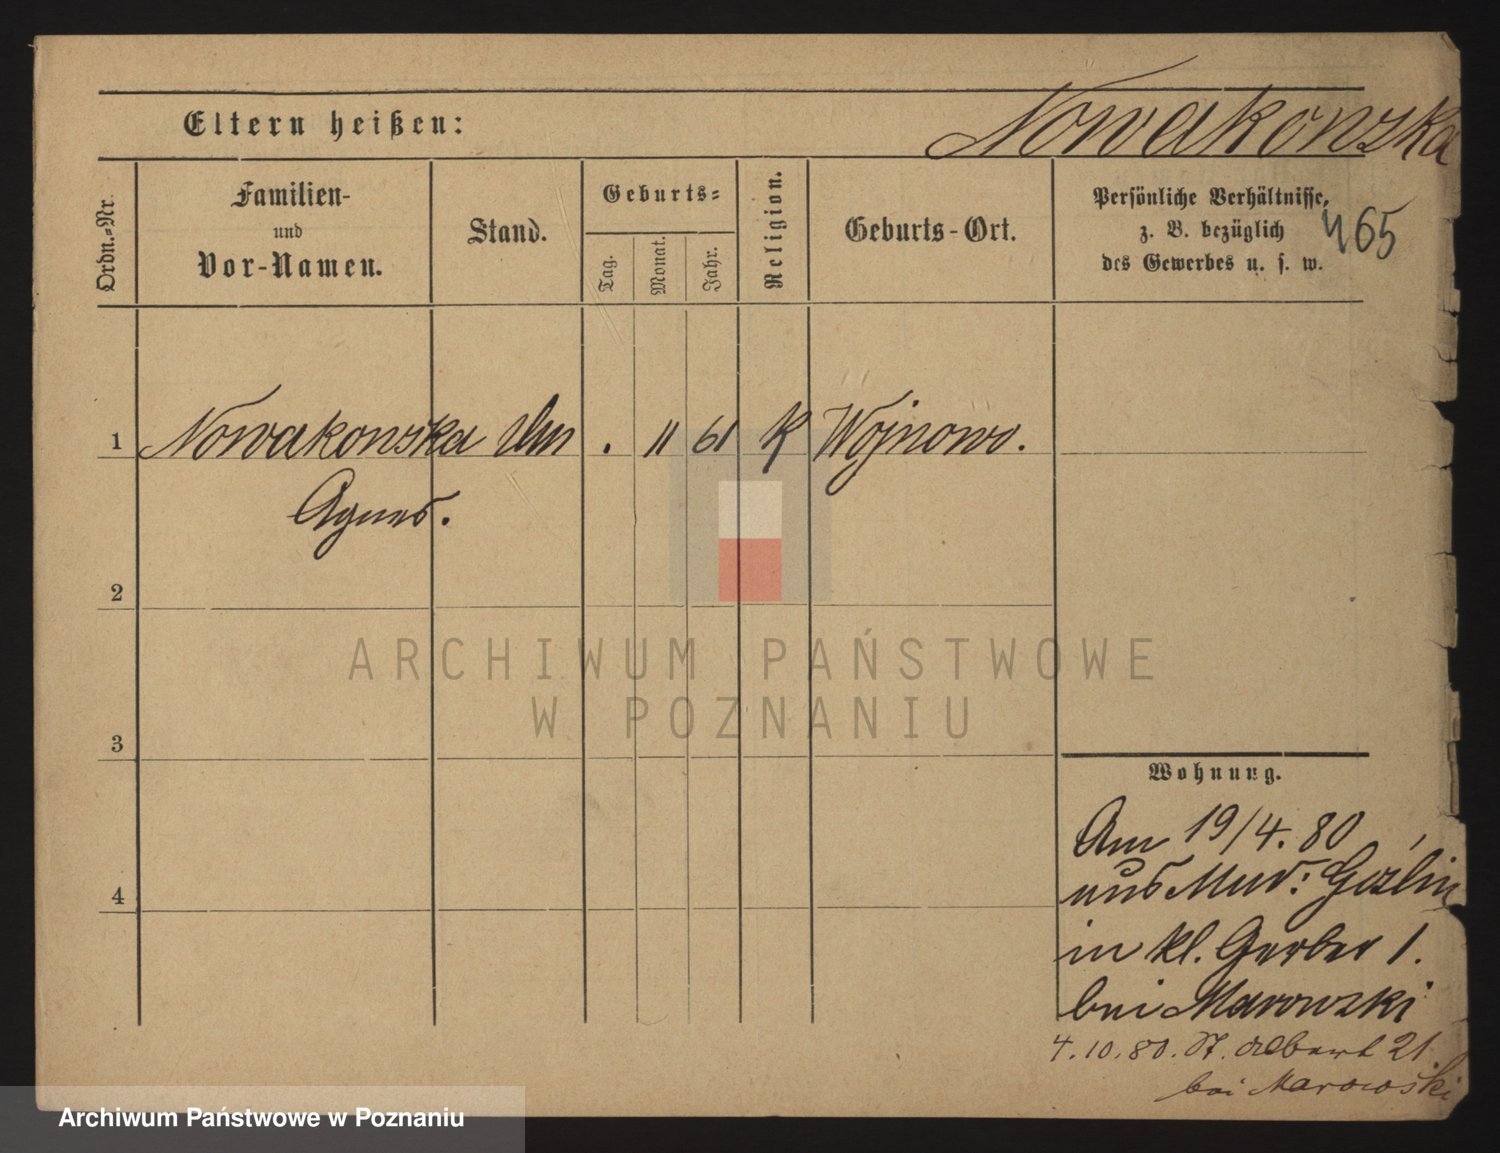 Eltern heißen:
Nowakowska
Ordn.-Nr.
Familien-
und
Vor-Namen.
Stand.
Geburts-
Tag.
Monat.
Jahr.
Religion.
Geburts-Ort.
Persönliche Verhältnisse,
z. B. bezüglich
des Gewerbes u. s. w.
465
1 Nowakowska . 11 61 K Wojnowo.
Agnes.
2
3
4
Wohnung.
Am 19/4. 80
aus Mur: Goslin
in kl. Gerber 1.
bei Marowski
4.10.80. St. Adalbert 21
bei Marowski
ARCHIWUM PAŃSTWOWE
W POZNANIU
Archiwum Państwowe w Poznaniu